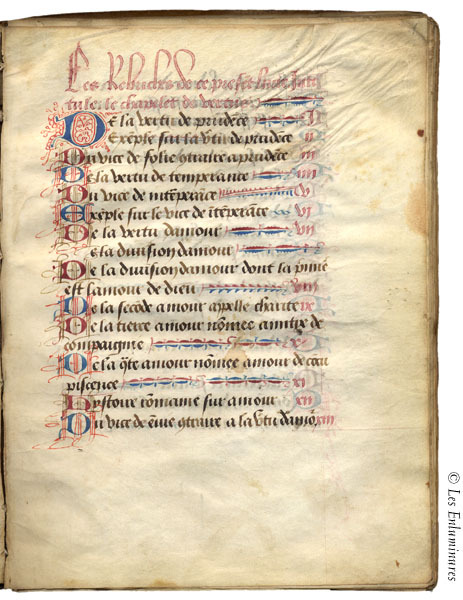 Les Rebriches de ce pnt̃ livre Intitu
tule le chapelet de vertus
De la vertu de prudẽce ii
Exẽple sur la v̓tu de prudẽce ii
Du vice de folie 9traire a prudẽce iii
De la vertu de temperance iiii
Du vice de intẽperãce vi
Exẽple sur le vice de ĩtẽperãce vi
De la vertu damour vii
De la division damour
De la division damour dont la p̃mie
est lamour de dieu viii
De la secõde amour apelle charite ix
De la tierce amour nõmee amitie de
compaignie x
De la q̃te amour nõmee amour de cõcu
piscence xi
Hystoire rommaine sur amour xii
Du vice de ẽvie 9traire a la v̓tu damõ xiii
© Les Enluminures